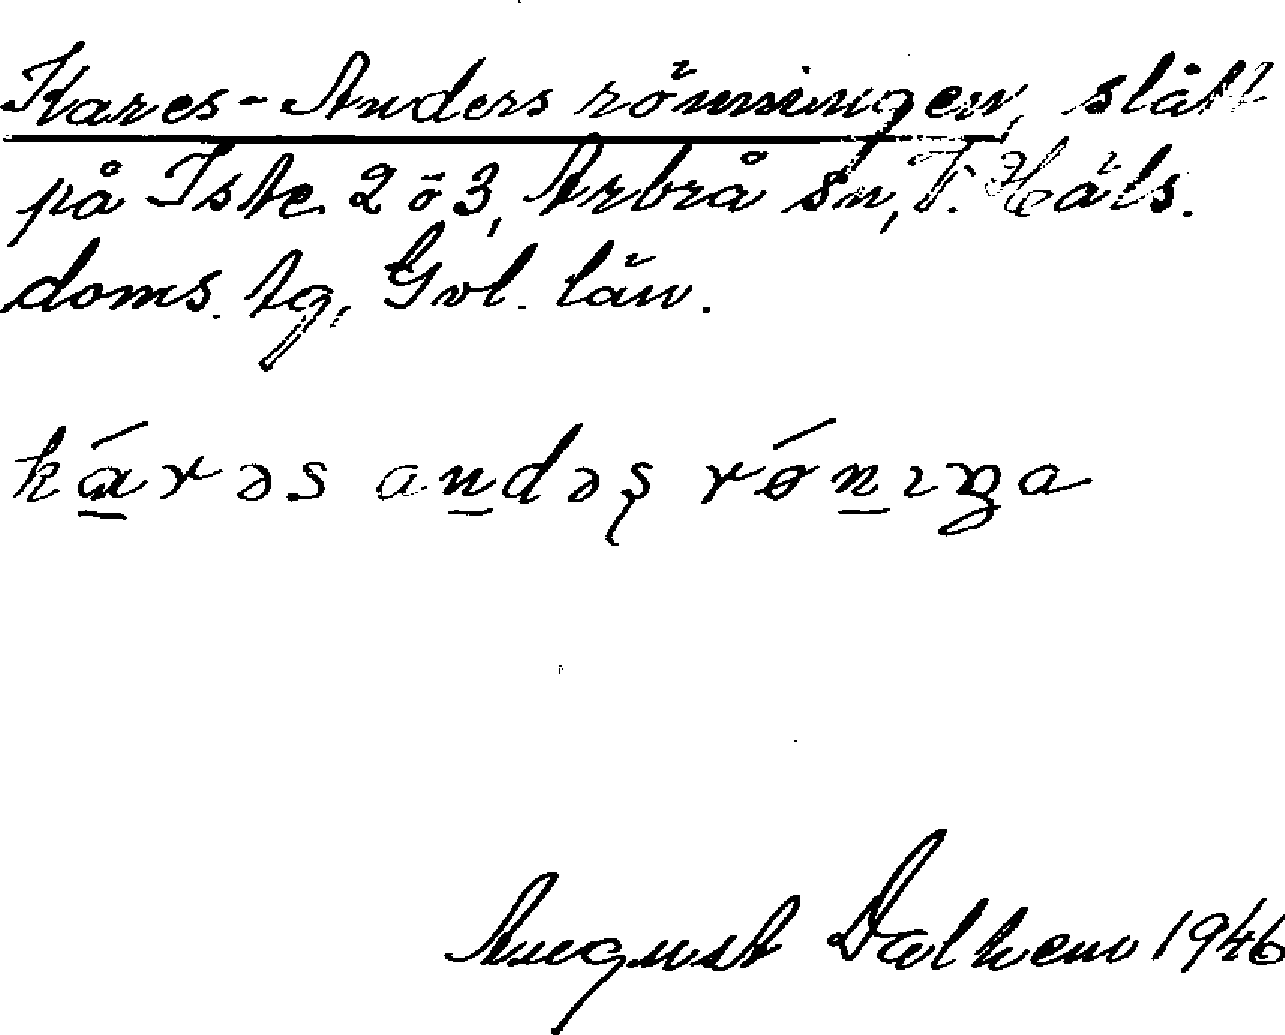 Kares-Anders rönningen, slått
på Iste 2 o 3, Arbrå sn, V. Häls.
doms. tg, Gvl. län.
kárəs andəʂ rónɪŋa
August Dalhem 1946